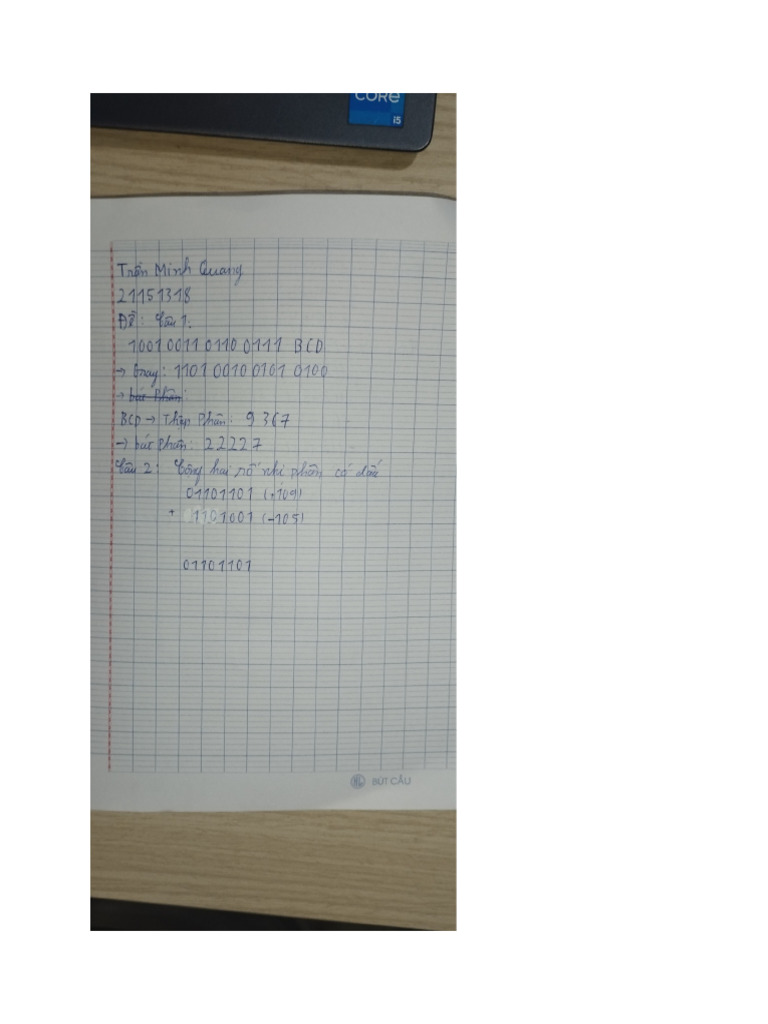 CORE
i5
Trần Minh Quang
21151318
Đề: Câu 1.
1001 0011 0110 0111 BCD
→ Gray: 1101 0010 0101 0100
→ bát phân:
BCD → Thập Phân: 9367
→ bát phân: 22227
Câu 2: Cộng hai số nhị phân có dấu
01101101 (+109)
+ 01101001 (-105)
01101101
BÚT CẦU